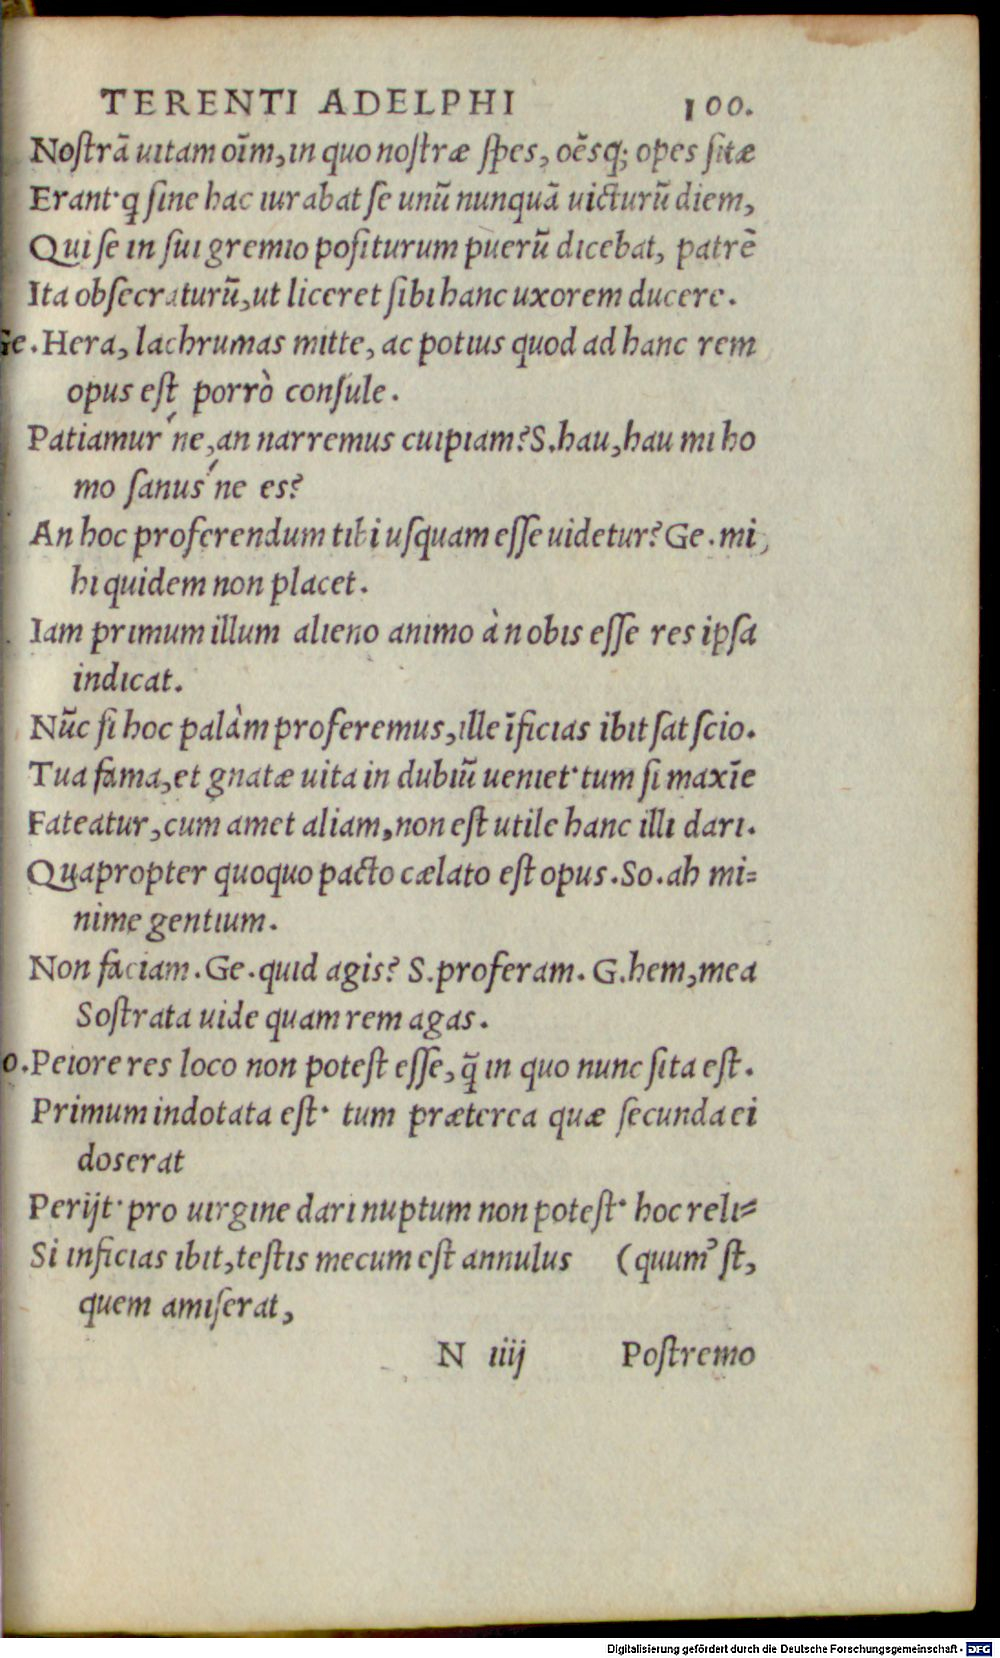 TERENTI ADELPHI 100.
Nostrā uitam oīm, in quo nostræ spes, oēsq; opes sitæ
Erant· q sine hac iurabat se unū nunquā uicturū diem,
Qui se in sui gremio positurum puerū dicebat, patrē
Ita obsecraturū, ut liceret sibi hanc uxorem ducere.
Ge. Hera, lachrumas mitte, ac potius quod ad hanc rem
opus est porrò consule.
Patiamur'ne, an narremus cuipiam? S. hau, hau mi ho
mo sanus'ne es?
An hoc proferendum tibi usquam esse uidetur? Ge. mi
hi quidem non placet.
Iam primum illum alieno animo à nobis esse res ipsa
indicat.
Nūc si hoc palàm proferemus, ille īficias ibit sat scio.
Tua fama, et gnatæ uita in dubiū ueniet· tum si maxīe
Fateatur, cum amet aliam, non est utile hanc illi dari.
Quapropter quoquo pacto cælato est opus. So. ah mi-
nime gentium.
Non faciam. Ge. quid agis? S. proferam. G. hem, mea
Sostrata uide quam rem agas.
o. Peiore res loco non potest esse, q̃ in quo nunc sita est.
Primum indotata est· tum præterea quæ secunda ei
doserat
Perijt· pro uirgine dari nuptum non potest· hoc reli-
Si inficias ibit, testis mecum est annulus (quum' st,
quem amiserat,
N iiij Postremo
Digitalisierung gefördert durch die Deutsche Forschungsgemeinschaft - DFG